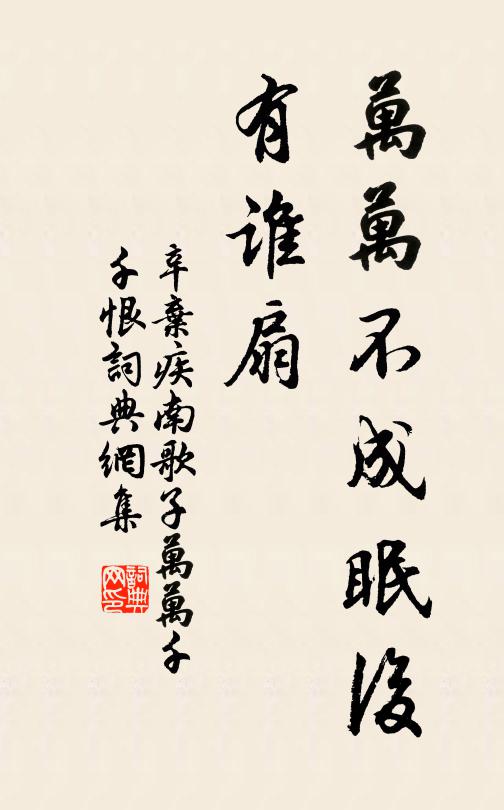 萬萬不成眠後
有誰扇
辛棄疾南歌子萬萬千
千恨詞典網集
詞典網印